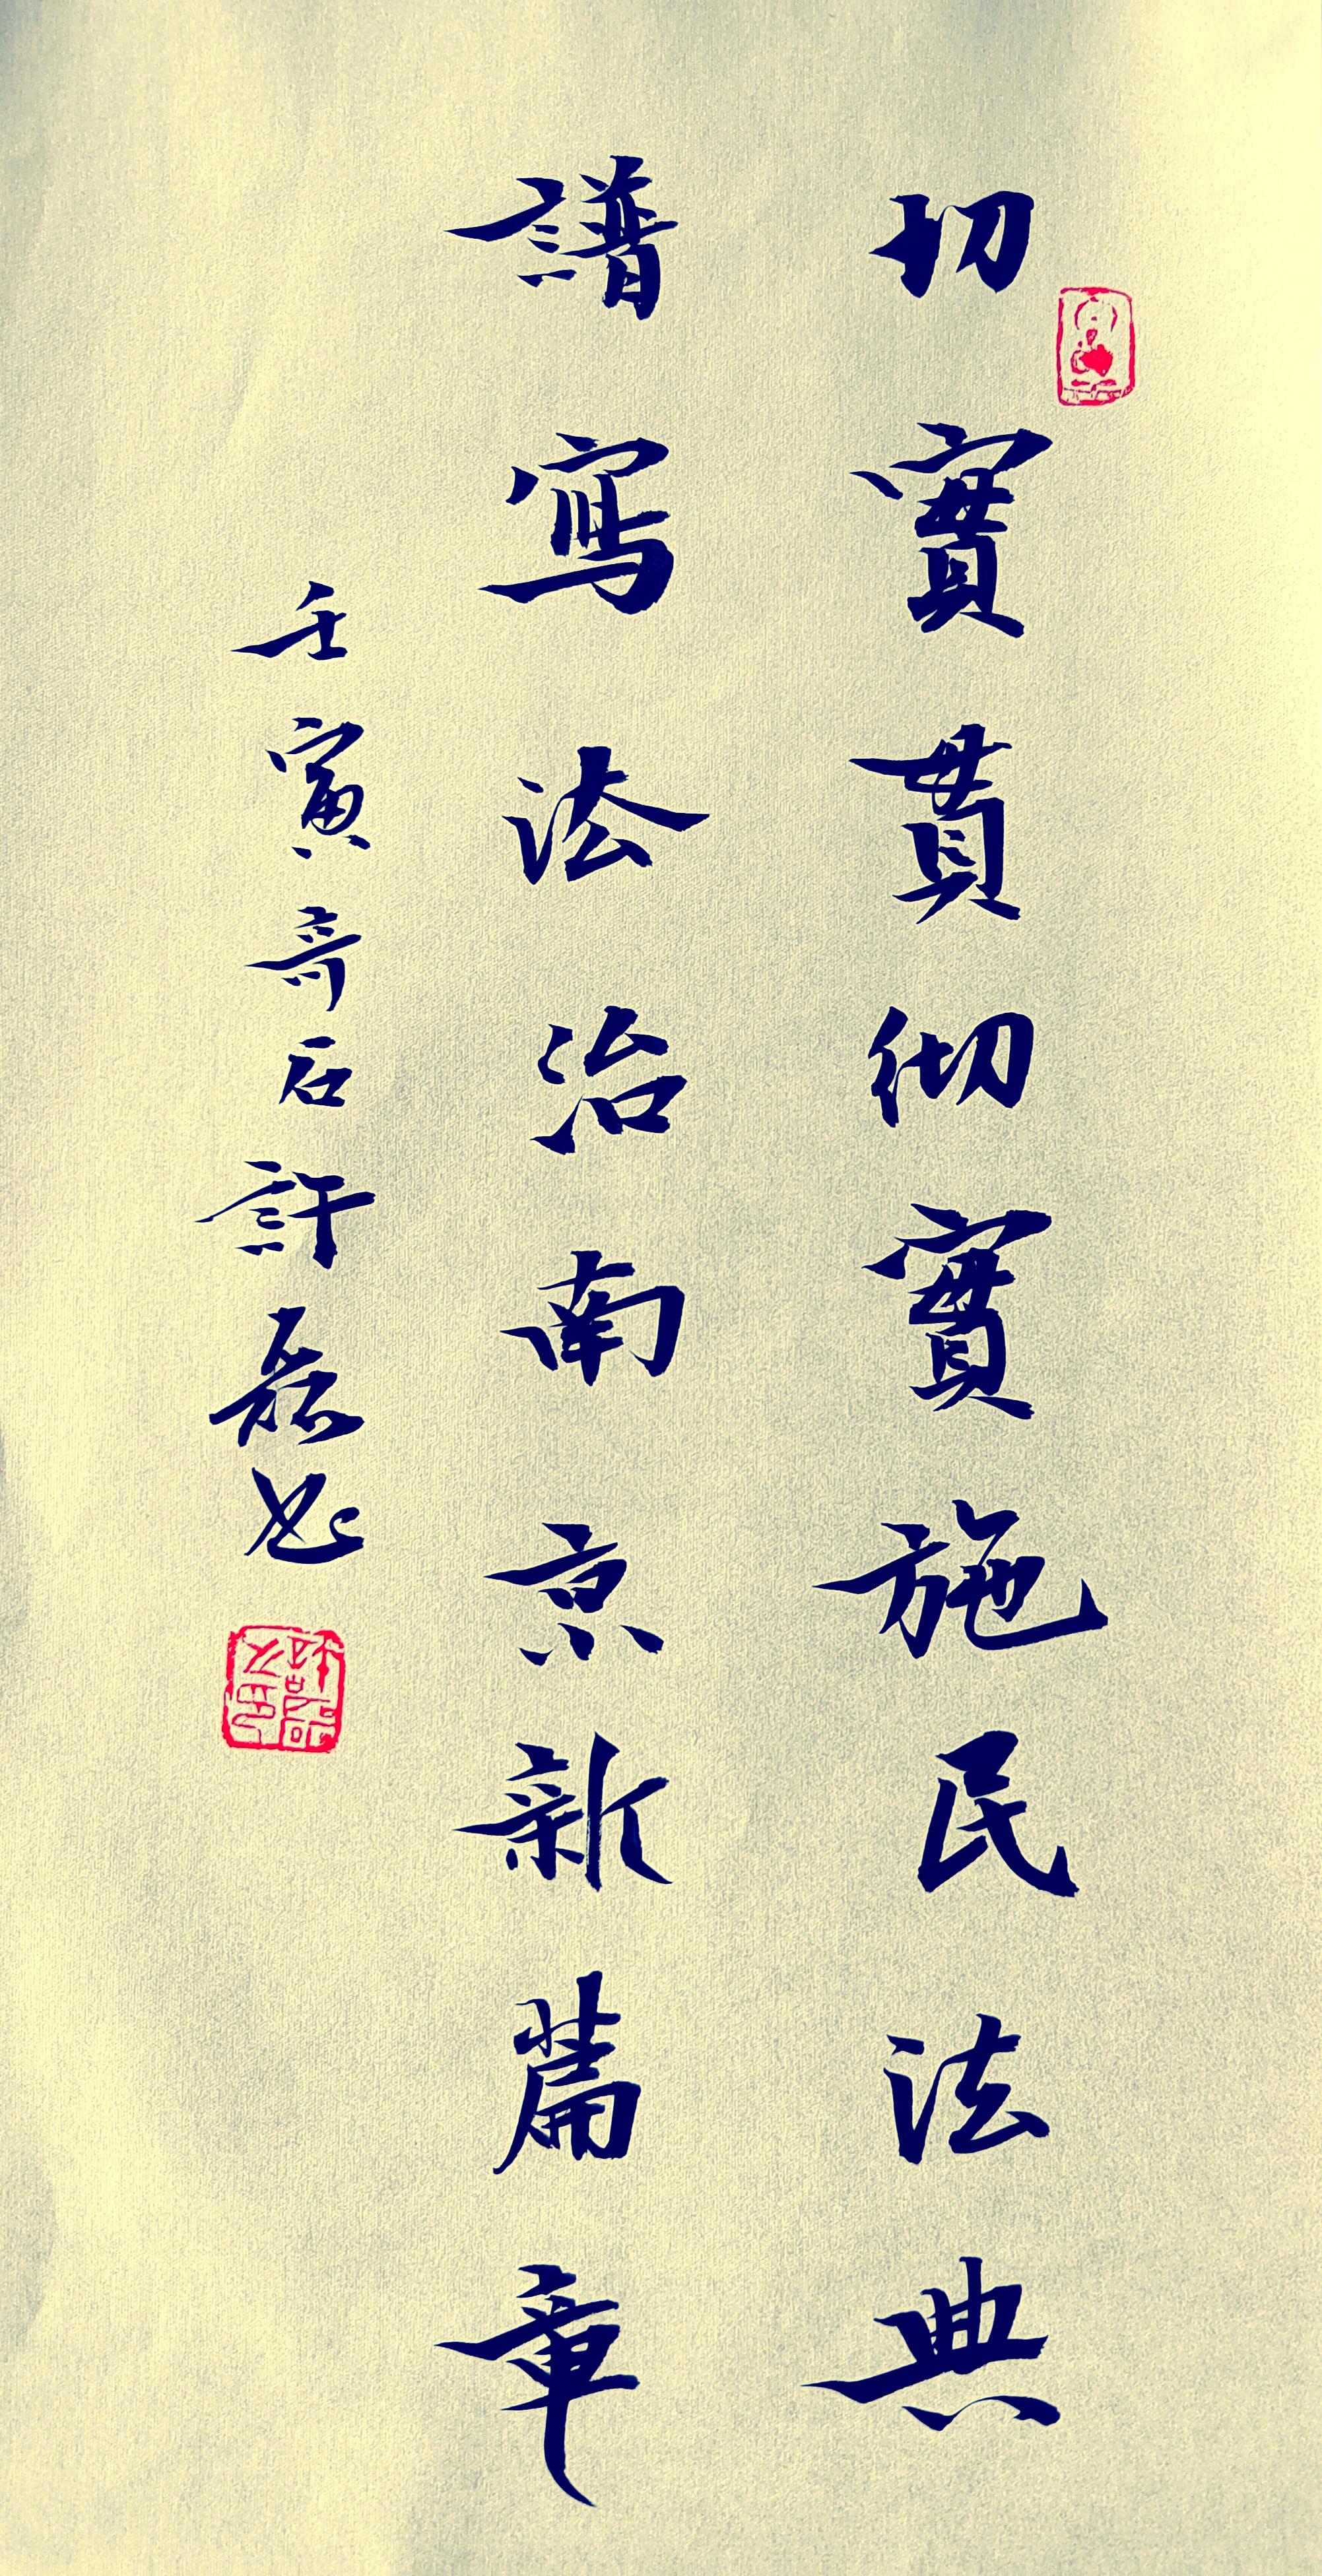 切實貫彻實施民法典
譜寫法治南京新篇章
壬寅奇石許磊书